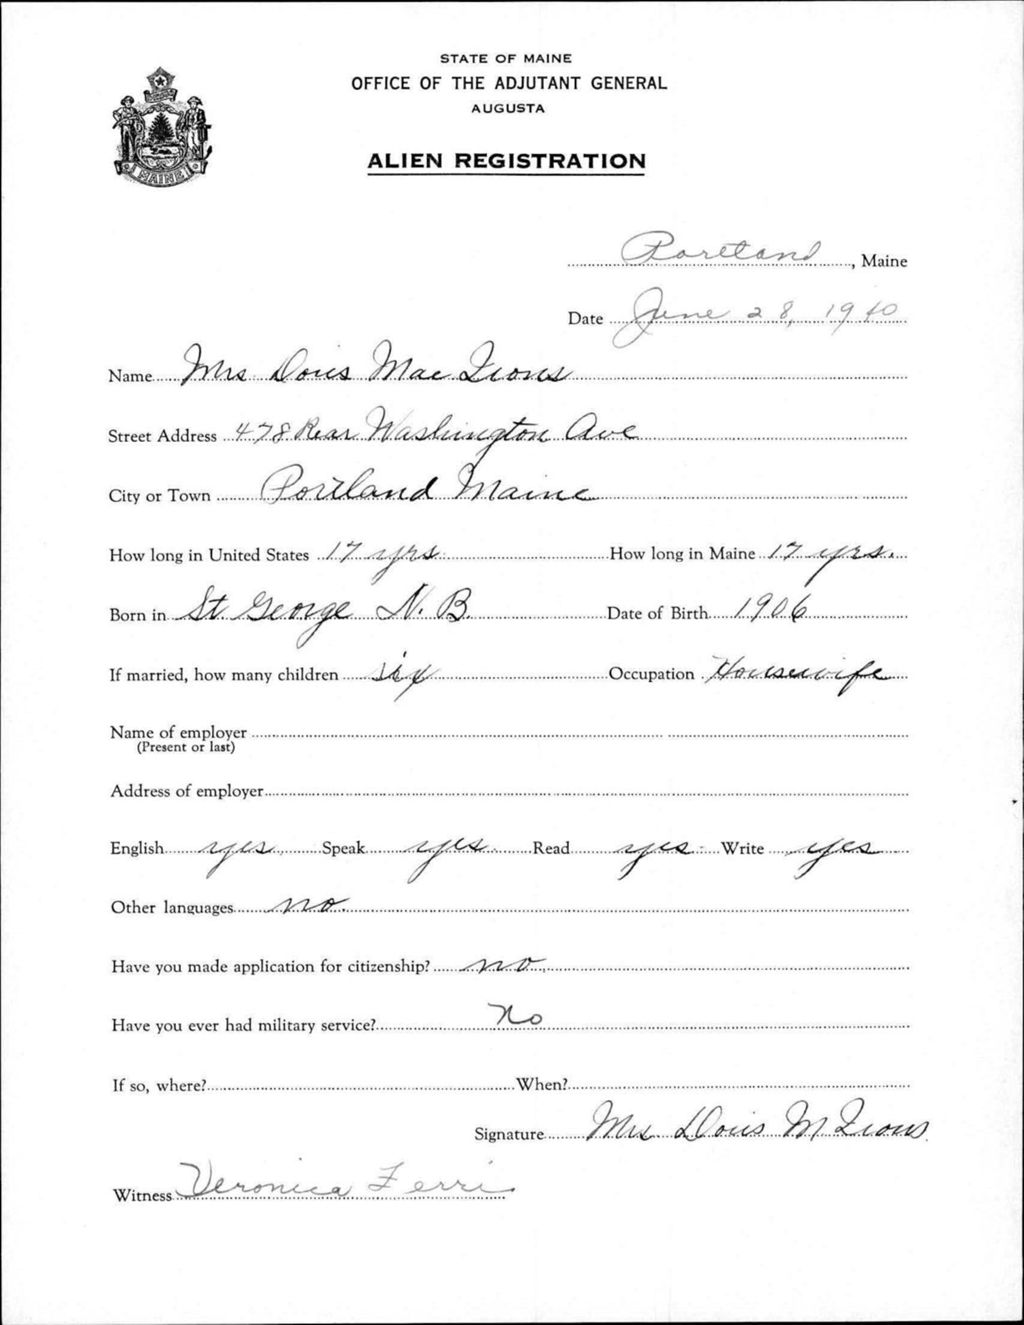 STATE OF MAINE
OFFICE OF THE ADJUTANT GENERAL
AUGUSTA
MAINE
ALIEN REGISTRATION
Portland, Maine
Date June 28, 1940
Name Mrs Doris Mac
Street Address 478 Rear Washington Ave
City or Town Portland Maine
How long in United States 17 yrs How long in Maine 17 yrs.
Born in St George N.B. Date of Birth 1906
If married, how many children six Occupation Housewife
Name of employer
(Present or last)
Address of employer
English yes Speak yes Read yes Write yes
Other languages no.
Have you made application for citizenship? no
Have you ever had military service? No
If so, where? When?
Signature Mrs Doris M
Witness Veronica Ferri